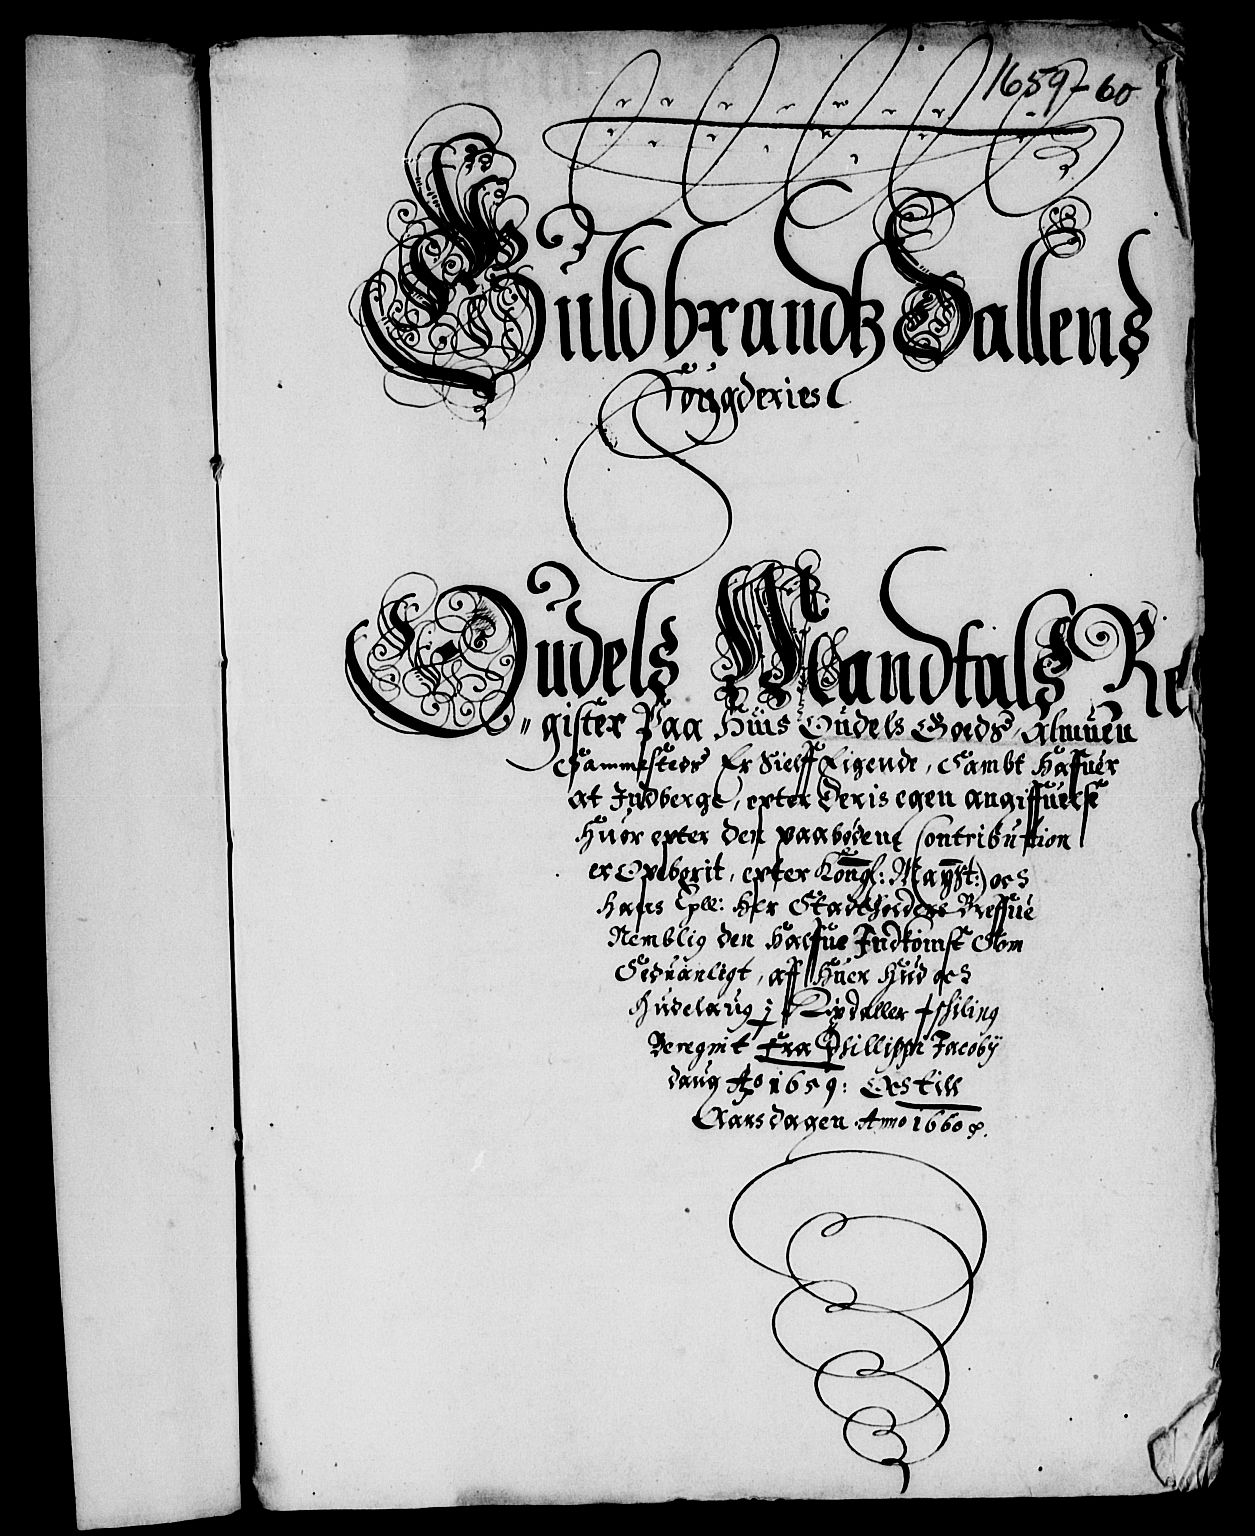 1659-60
Guldbrandtz Dallens
Fougderies
Oudels Mandtals Re
"gister Paa Huis Oudels Goeds, Almuen
Sammesteds Er Sielff Eigende, Sambt Haffuer
at Indberge, epter deris egen angiffuelse
Huor epter den paabødene Contribution
er Opeberit, epter Kongl: Mayst:) och
Hans Exll: Her Stadtholders Breffue
Nemblig den Halfue Indkomst Som
Seduanligt, aff Huer Hud och
Hudelaug ½ Rixdaller 4 skiling
Beregnit Fra Phillippi Jacobij
daug Ao 1659: Och till
Aarsdagen Anno 1660